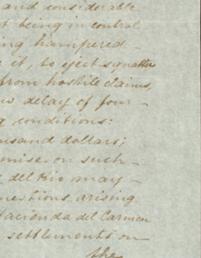 and considerable
t being in control
ng hampered
it, to eject squatters
from hostile claims,
w delay of four
g conditions:
usand dollars;
mise on such
del Rio may
nestions arising
Hacienda del Carmen
settlements on
the